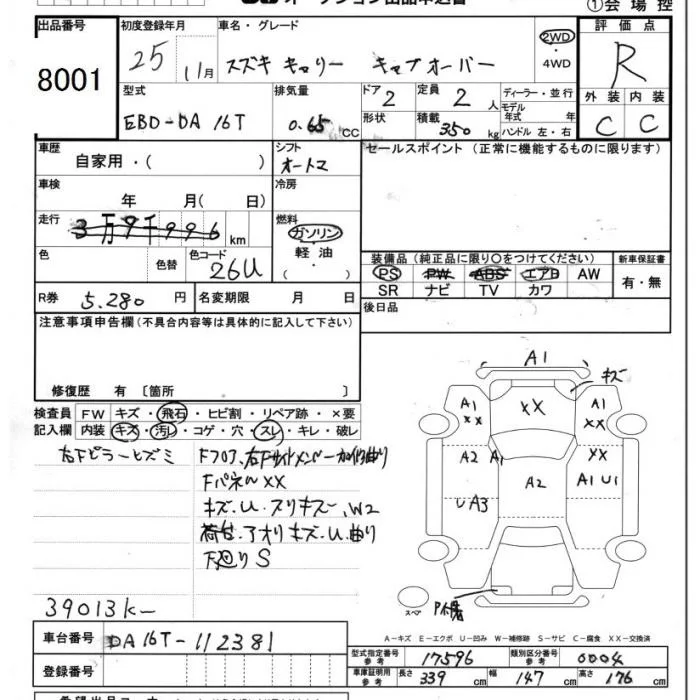 ①会場控
出品番号
8001
初度登録年月
25 11月
車名・グレード
スズキ キャリー キャブオーバー
2WD
・4WD
評価点
R
外装 内装
C C
型式
EBD-DA16T
排気量
0.65 CC
ドア
2
定員
2 人
形状
積載
350 kg
ディーラー・並行
モデル
年式 年
ハンドル 左・右
車歴
自家用・( )
シフト
オートマ
セールスポイント(正常に機能するものに限ります)
車検
年 月( 日)
冷房
走行
3万9千996 km
燃料
ガソリン
軽油
( )
色
色替
色コード
26U
装備品(純正品に限り○をつけてください)
PS PW ABS エアB AW
SR ナビ TV カワ
新車保証書
有・無
R券 5.280 円
名変期限 月 日
後日品
注意事項申告欄(不具合内容等は具体的に記入して下さい)
修復歴 有〔箇所 〕
検査員
記入欄
FW キズ・飛石・ヒビ割・リペア跡・×要
内装 キズ・汚レ・コゲ・穴・スレ・キレ・破レ
右Fピラーヒズミ
FパネルXX
キズ.U.スリキズ〜.W2
荷台.アオリキズ.U.曲り
下廻りS
39013k
A1
キズ
A1
XX
XX
A1
XX
A2 A1
XX
A2
A1 U1
U A3
スペア
A－キズ E－エクボ U－凹み W－補修跡 S－サビ C－腐食 XX－交換済
車台番号
DA16T-112381
登録番号
型式指定番号
参考
17596
類別区分番号
参考
0004
車庫証明用
参考
長さ 339 cm
幅 147 cm
高さ 176 cm